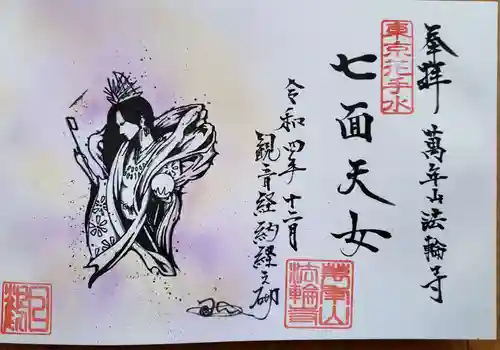 奉拝
萬年山法輪寺
東京花手水
七面天女
令和四年十二月
観音経納経之砌
萬年山
法輪寺